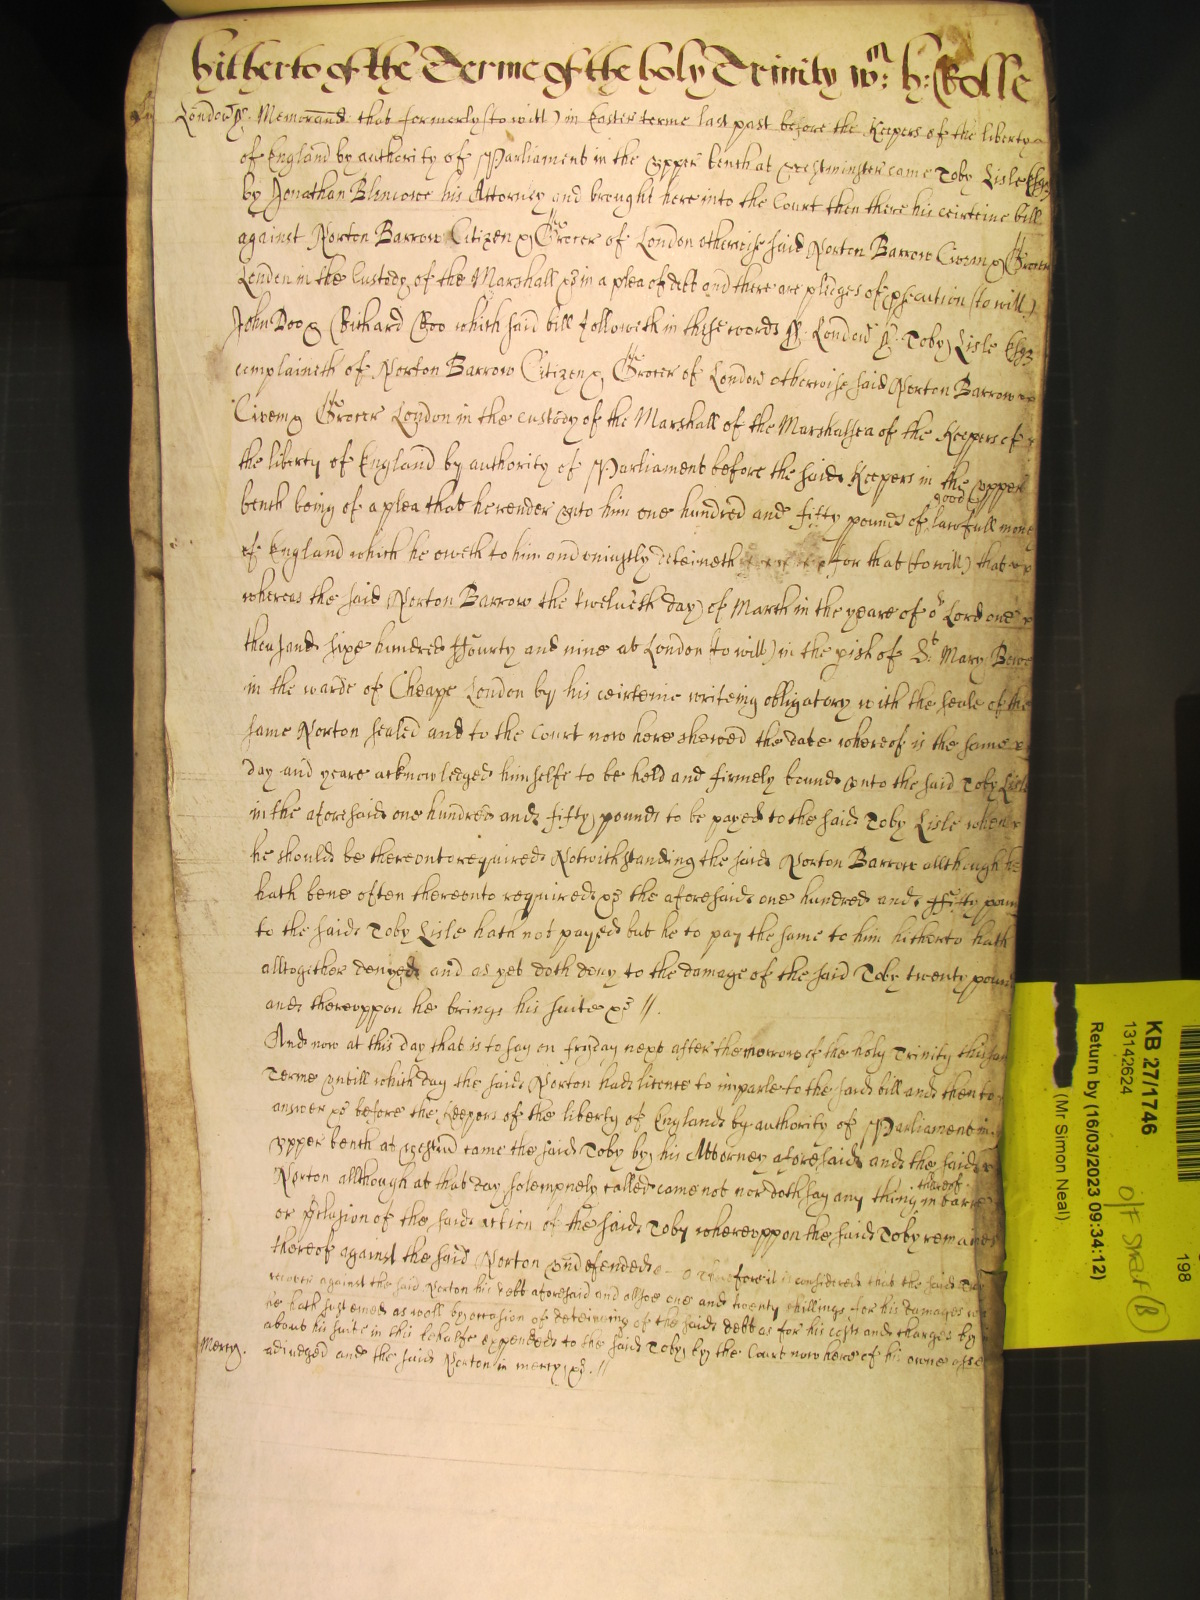 hitherto of the Terme of the holy Trinity Wm: h: Rolle
London ss. Memorand that formerly (to witt) in Easter terme last past before the Keepers of the liberty
of England by authority of Parliament in the upper bench at Westminster came Toby Lisle Esqr
by Jonathan Blencowe his Attorney and brought here into the Court then there his certeine bill
against Norton Barrow Citizen & Grocer of London otherwise said Norton Barrow Civem & Grocer
London in the Custody of the Marshall &c in a plea of debt and there are pledges of psecution (to witt)
John Doo & Richard Roo which said bill followeth in these words ss. London ss. Toby Lisle Esqr
complaineth of Norton Barrow Citizen & Grocer of London otherwise said Norton Barrow
Civem & Grocer London in the custody of the Marshall of the Marshalsea of the Keepers of
the liberty of England by authority of Parliament before the said Keepers in the upper
bench being of a plea that he render unto him one hundred and fifty pounds of good & lawfull money
of England which he oweth to him and uniustly deteineth for that (to witt) that
whereas the said Norton Barrow the twelveth day of March in the yeare of or Lord one
thousand sixe hundred ffourty and nine at London (to witt) in the pish of St Mary Bowe
in the warde of Cheape London by his certeine writeing obligatory with the seale of the
same Norton sealed and to the Court now here shewed the date whereof is the same
day and yeare acknowledged himselfe to be held and firmely bound unto the said Toby Lisle
in the aforesaid one hundred and fifty pounds to be payed to the said Toby Lisle when
he should be thereonto required Notwithstanding the said Norton Barrow allthough he
hath bene often thereonto required &c the aforesaid one hundred and ffifty poun
to the said Toby Lisle hath not payed but he to pay the same to him hitherto hath
alltogether denyed and as yet doth deny to the damage of the said Toby twenty pound
and thereuppon he brings his suite &c //.
And now at this day that is to say on fryday next after the morrow of the holy Trinity this
Terme untill which day the said Norton had licence to imparle to the said bill and then to
answer &c before the keepers of the liberty of England by authority of Parliament in
upper bench at Westm came the said Toby by his Attorney aforesaid and the said
Norton allthough at that day solempnely called came not nor doth say any thing thereof in barre
or pclusion of the said action of the said Toby whereuppon the said Toby remaines
thereof against the said Norton undefended Therefore it is considered that the said Toby
recover against the said Norton his debt aforesaid and allsoe one and twenty shillings for his damages
he hath susteined as well by occasion of deteineing of the said debt as for his costs and charges by
about his suite in this behalfe expended to the said Toby by the Court now here of his owne
Mercy. adiudged and the said Norton in mercy &c. //
KB 27/1746
13142624
Return by (16/03/2023 09:34:12)
(Mr Simon Neal)
198